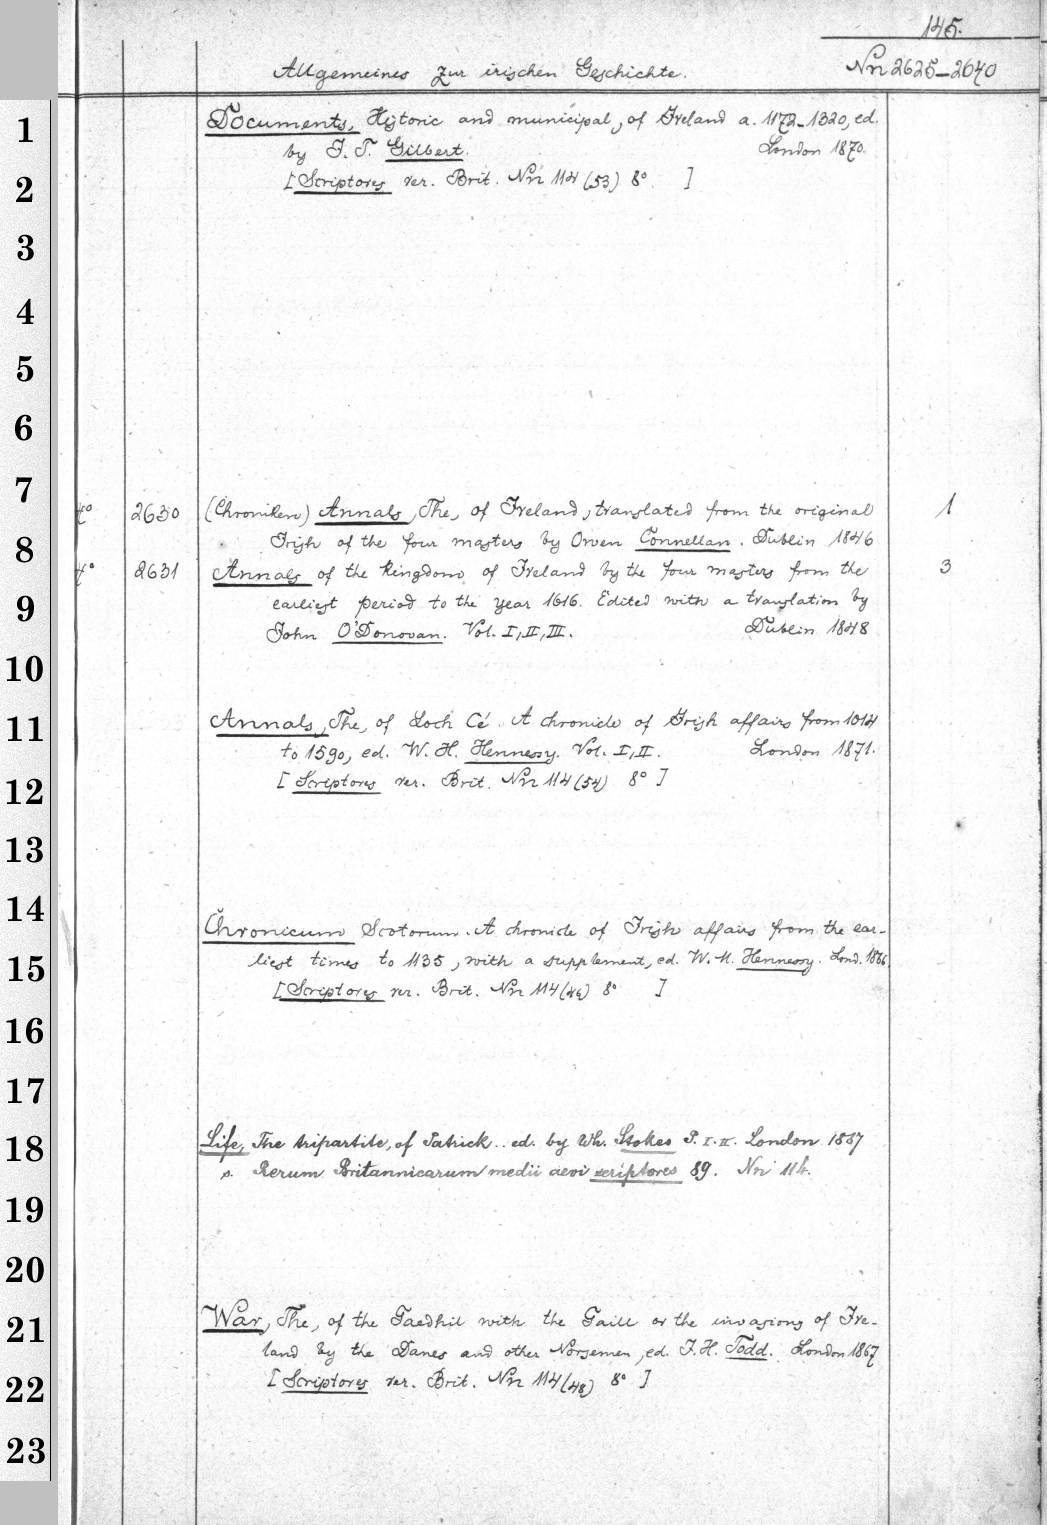 145.
Allgemeines zur irischen Geschichte. Nn 2625–2640
1
Documents, Historic and municipal, of Ireland a. 1172–1320, ed.
by J. T. Gilbert. London 1870.
2
[Scriptores rer. Brit. Nn 114 (53) 8° ]
3
4
5
6
7
4° 2630 (Chroniken) Annals, The, of Ireland, translated from the original 1
8
Irish of the four masters by Owen Connellan. Dublin 1846
4° 2631 Annals of the kingdom of Ireland by the four masters from the 3
9
earliest period to the year 1616. Edited with a translation by
John O'Donovan. Vol. I, II, III. Dublin 1848
10
11
Annals, The, of Loch Cé. A chronicle of Irish affairs from 1014
to 1590, ed. W. H. Hennessy. Vol. I, II. London 1871.
12
[Scriptores rer. Brit. Nn 114 (54) 8° ]
13
14
Chronicum Scotorum. A chronicle of Irish affairs from the ear-
15
liest times to 1135, with a supplement, ed. W. M. Hennessy. Lond. 1866
[Scriptores rer. Brit. Nn 114 (46) 8° ]
16
17
18
Life, The tripartite, of Patrick.. ed. by Wh. Stokes P. I. II. London 1887
s. Rerum Britannicarum medii aevi scriptores 89. Nn 114.
19
20
21
War, The, of the Gaedhil with the Gaill or the invasions of Ire-
land by the Danes and other Norsemen, ed. J. H. Todd. London 1867
22
[Scriptores rer. Brit. Nn 114 (48) 8° ]
23